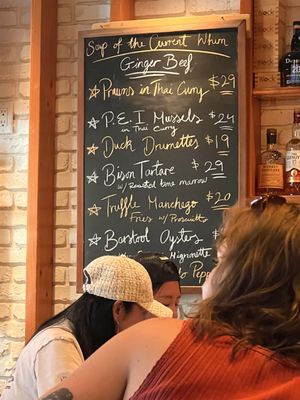 Soup of the Current Whim
Ginger Beef
Prawns in Thai Curry $29
P.E.I Mussels $24
in Thai Curry
Duck Drumettes $19
Bison Tartare $29
w/ Roasted bone marrow
Truffle Manchego $20
Fries w/ Prosciutto
Barstool Oysters $
Mignonette
Pepper